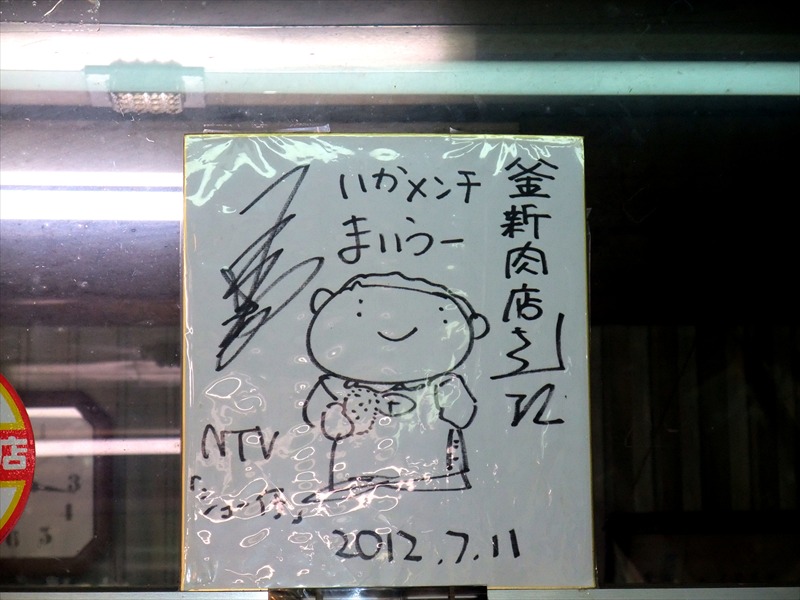 釜新肉店さん江
いかメンチ
まいうー
NTV
2012.7.11
店
3
4
5
6